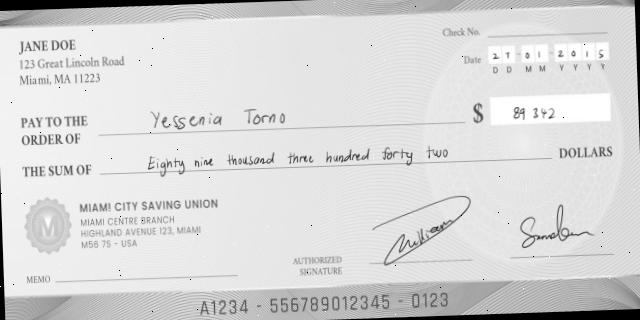 Check No.
JANE DOE
123 Great Lincoln Road
Miami, MA 11223
Date 27-01-2015
D D M M Y Y Y Y
PAY TO THE ORDER OF Yessenia Torno $ 89 342.
THE SUM OF Eighty nine thousand three hundred forty two DOLLARS
MIAMI CITY SAVING UNION
MIAMI CENTRE BRANCH
HIGHLAND AVENUE 123, MIAMI
M56 75 - USA
M
MEMO
AUTHORIZED SIGNATURE
William
A1234 - 556789012345 - 0123